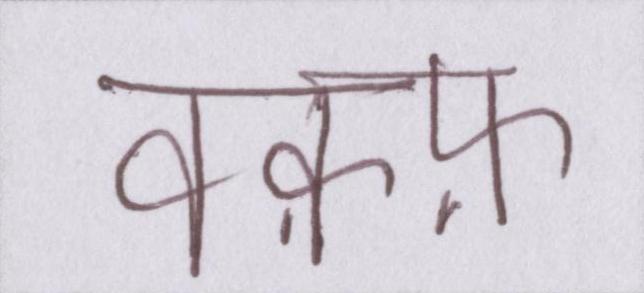 वक़फ़